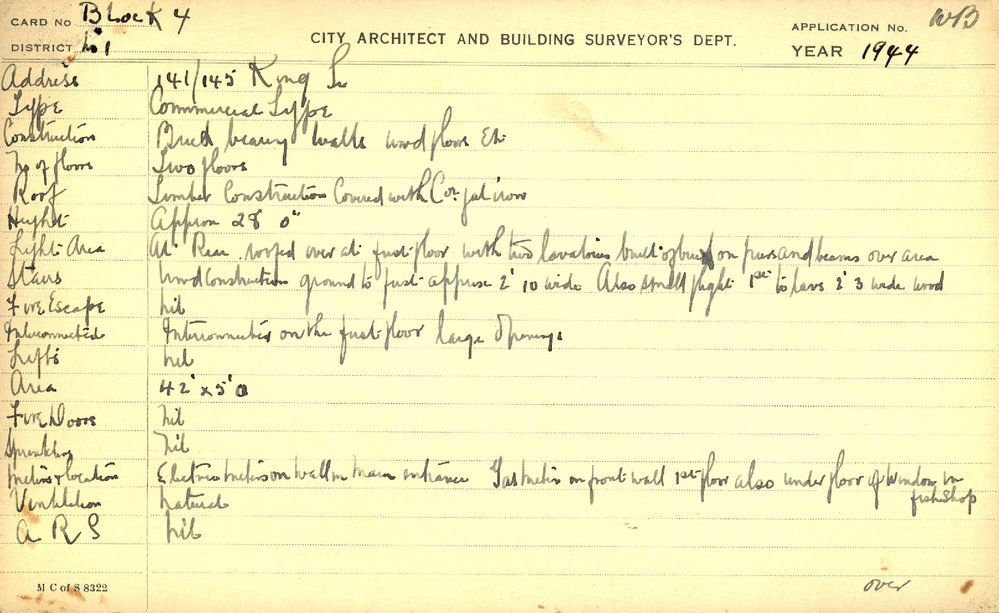 CARD NO Block 4
APPLICATION NO. WB
DISTRICT No 1
CITY ARCHITECT AND BUILDING SURVEYOR'S DEPT.
YEAR 1944
Address 141/145 King St
Type Commercial Type
Construction Brick bearing walls wood floors Etc
No of floors Two floors
Roof Timber Construction Covered with Cor gal iron
Height Approx 28' 0"
Light Area At Rear roofed over at first floor with two lavatories built of brick on piers and beams over area
Stairs Wood Construction ground to first approx 2' 10 wide Also small flight 1st to lavs 2' 3 wide wood
Fire Escape nil
Interconnected Interconnected on the first floor large Openings
Lifts nil
Area 42' x 5'0
Fire Doors nil
Sprinklers nil
Meters & location Electric meters on wall in Main entrance Gas meter on front wall 1st floor also under floor of Window in
fish shop
Ventilation natural
A R S nil
M C of S 8322
over